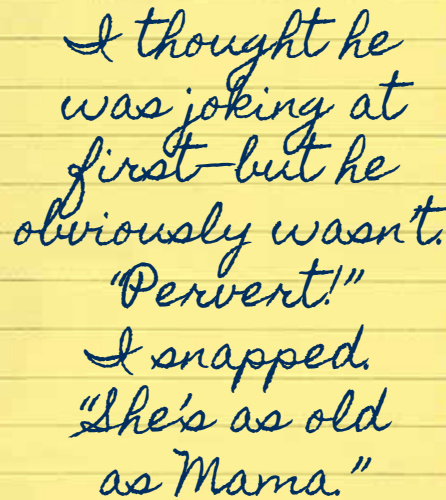 I thought he
was joking at
first—but he
obviously wasn't.
"Pervert!"
I snapped.
"She's as old
as Mama."